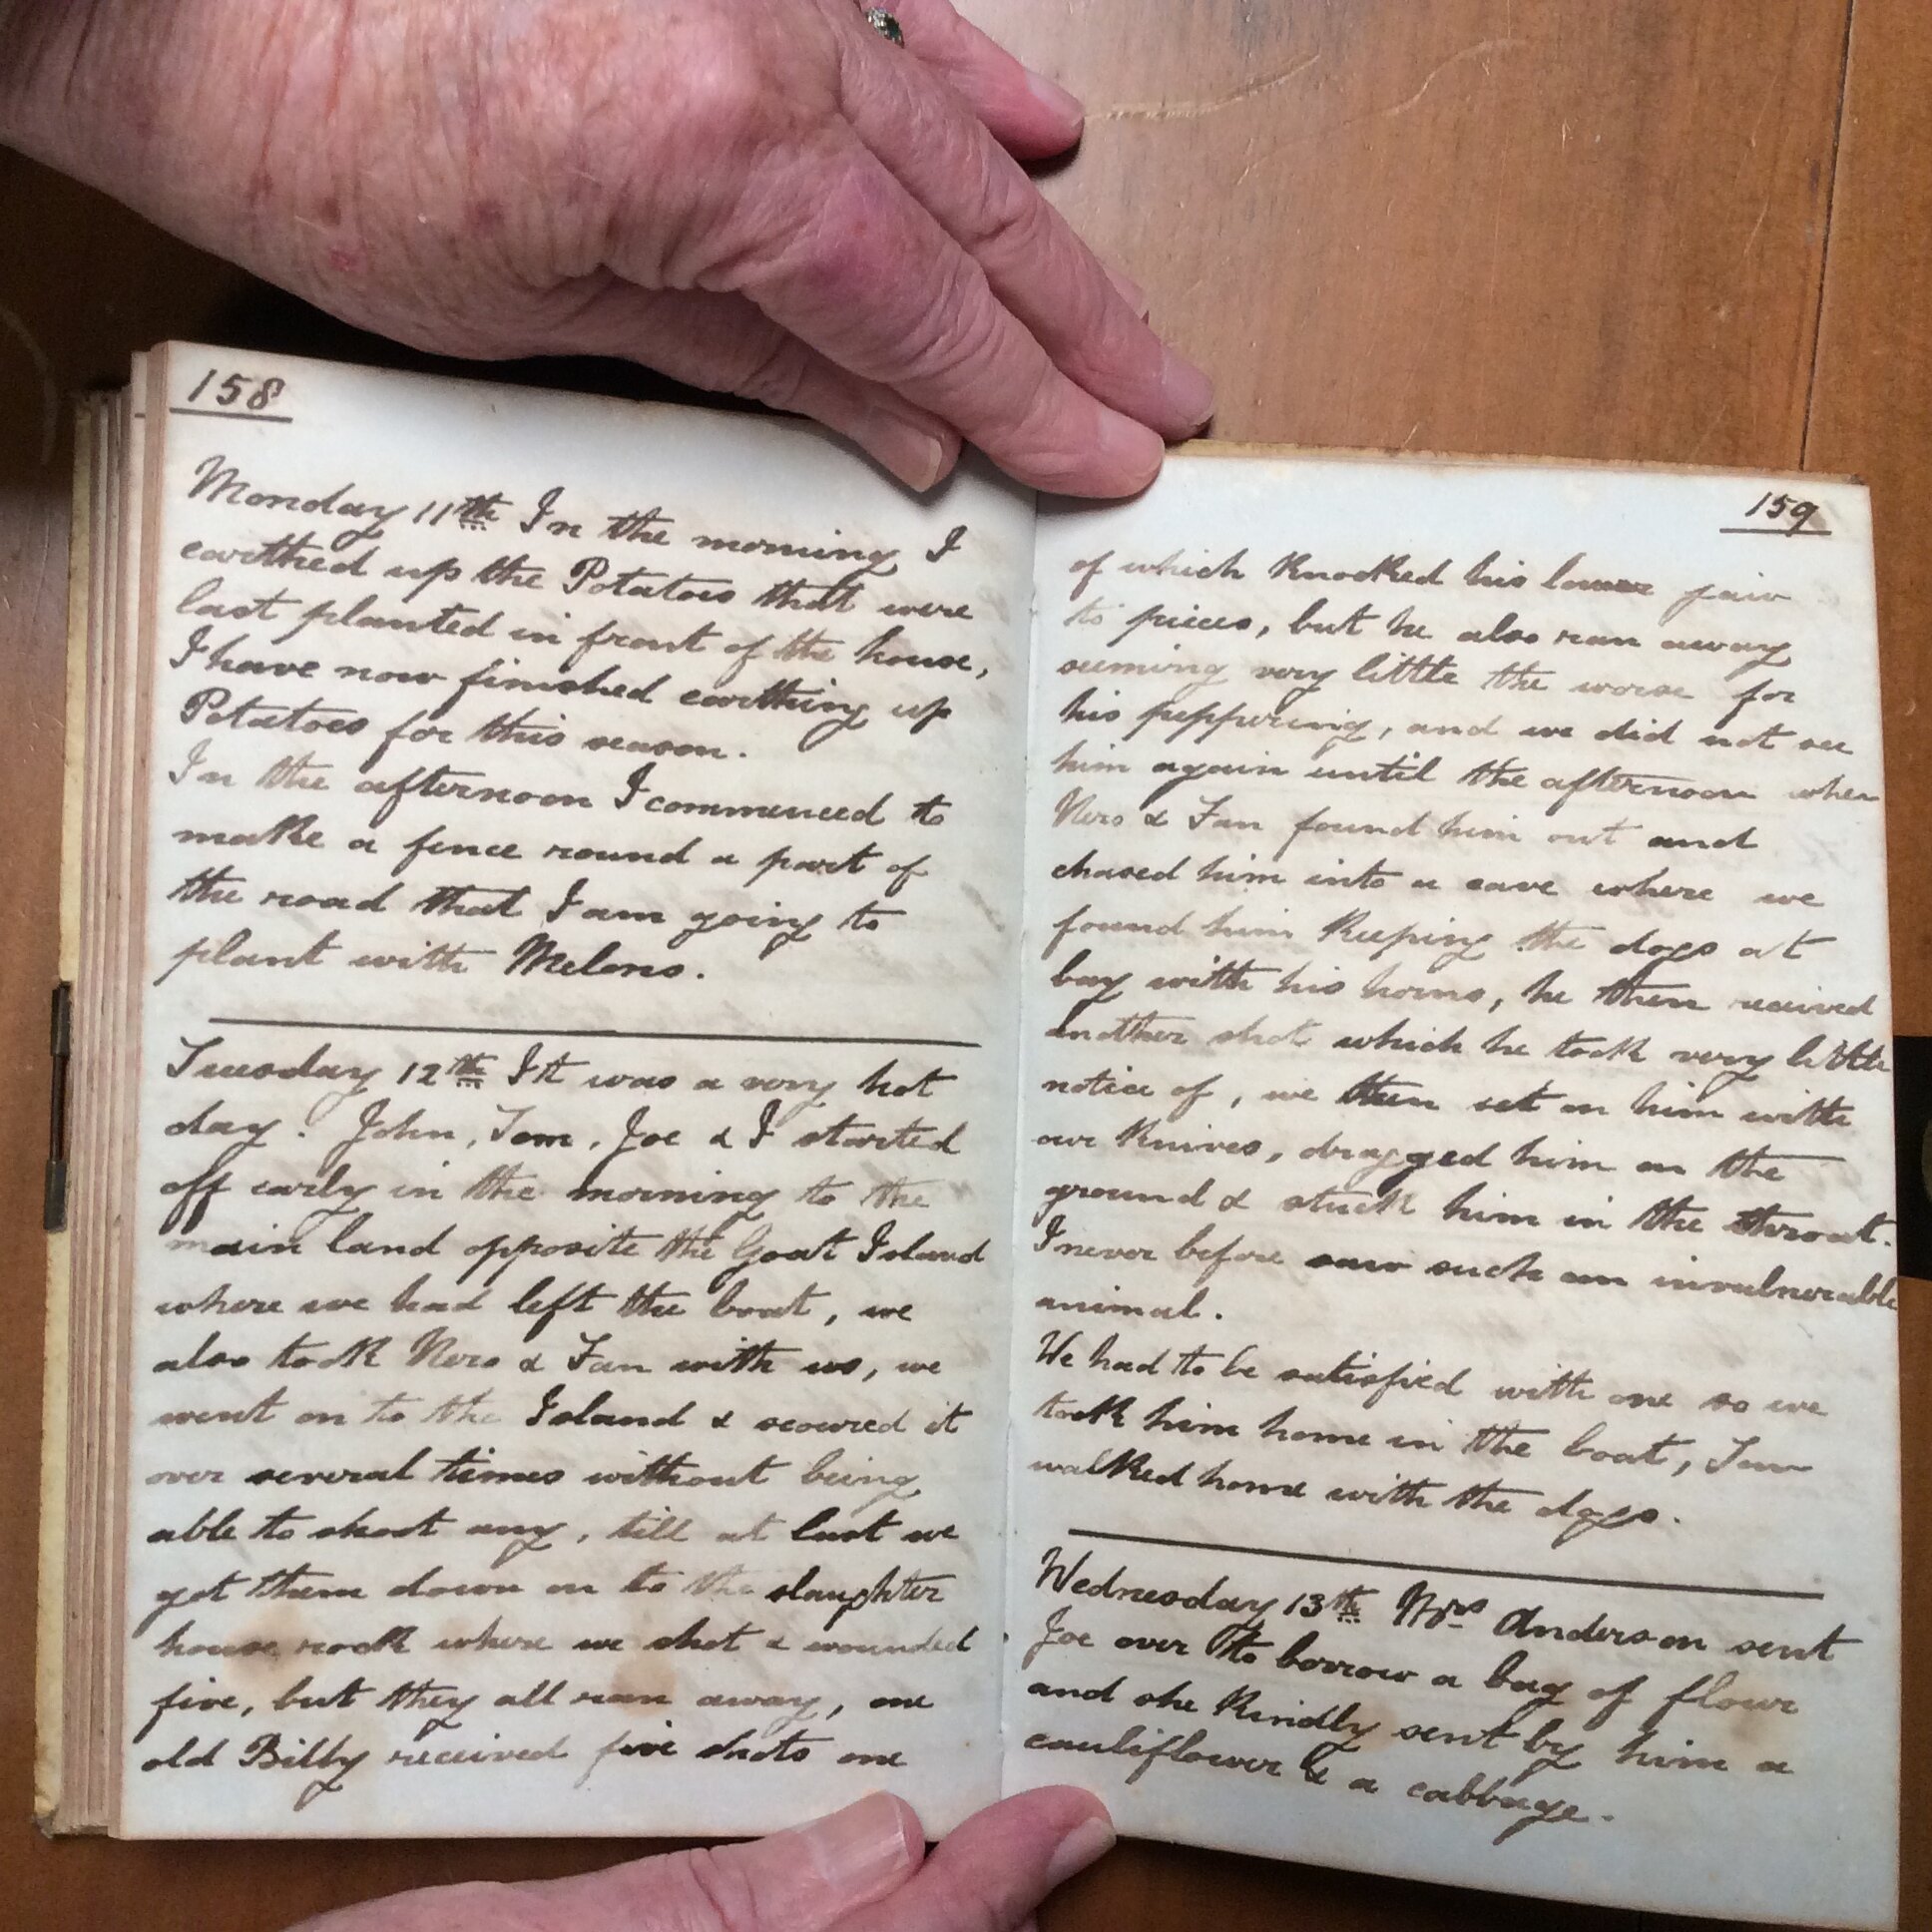 158
Monday 11th In the morning I
earthed up the Potatoes that were
last planted in front of the house,
I have now finished earthing up
Potatoes for this season.
In the afternoon I commenced to
make a fence round a part of
the road that I am going to
plant with Melons.
Tuesday 12th It was a very hot
day. John, Tom, Joe & I started
off early in the morning to the
main land opposite the Goat Island
where we had left the boat, we
also took Nero & Fan with us, we
went on to the Island & scoured it
over several times without being
able to shoot any, till at last we
got them down on to the slaughter
house rock where we shot & wounded
five, but they all ran away, one
old Billy received five shots one
159
of which knocked his lower jaw
to pieces, but he also ran away
seeming very little the worse for
his peppering, and we did not see
him again until the afternoon when
Nero & Fan found him out and
chased him into a cave where we
found him keeping the dogs at
bay with his horns, he then received
another shot which he took very little
notice of, we then set on him with
our knives, dragged him on the
ground & stuck him in the throat.
I never before saw such an invulnerable
animal.
We had to be satisfied with one so we
took him home in the boat, Tom
walked home with the dogs.
Wednesday 13th Mrs Anderson sent
Joe over to borrow a bag of flour
and she kindly sent by him a
cauliflower & a cabbage.